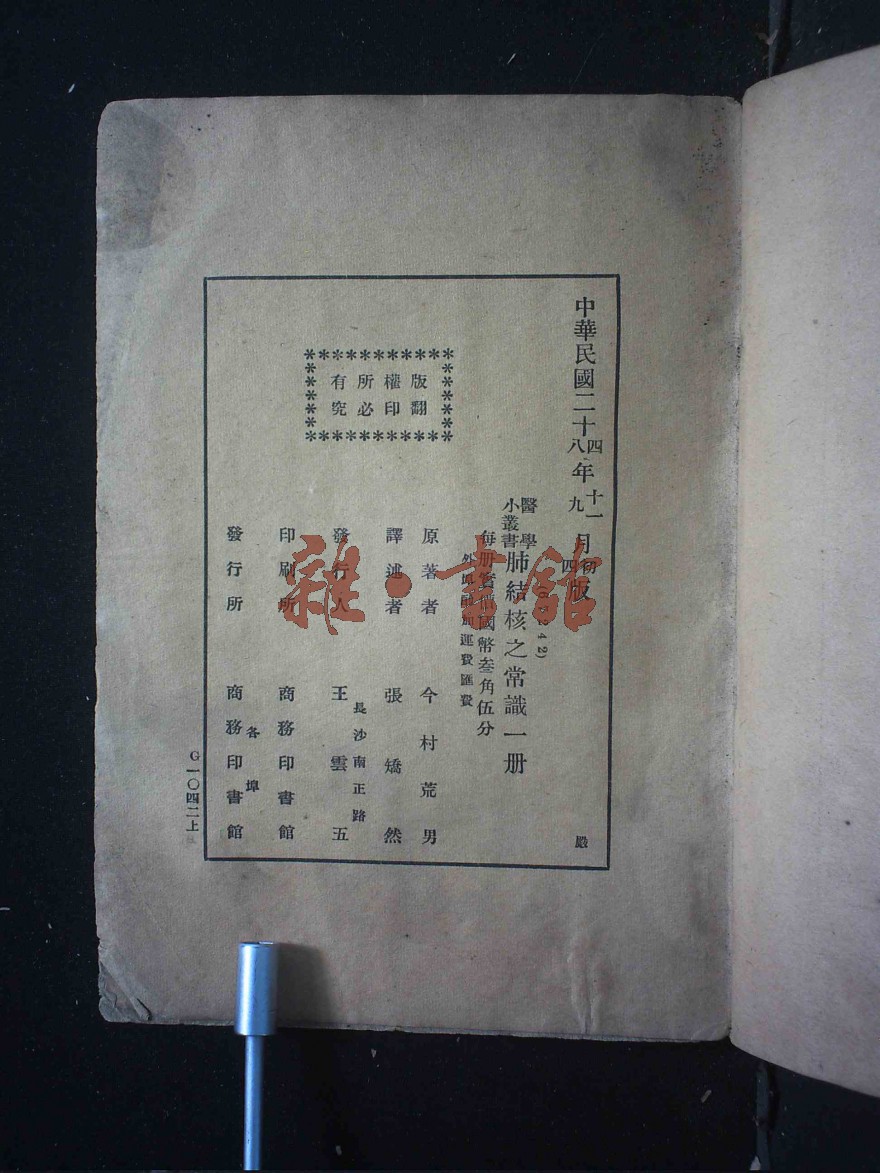 中華民國二十四八年十一九月初四版
醫學小叢書肺結核之常識一册
242)
每册實價國幣叁角伍分
外埠酌加運費匯費
原著者 今村荒男
譯述者 張矯然
長沙南正路
發行人 王雲五
印刷所 商務印書館
各埠
發行所 商務印書館
版權所有
翻印必究
G一〇四二上
殿
雜·書館